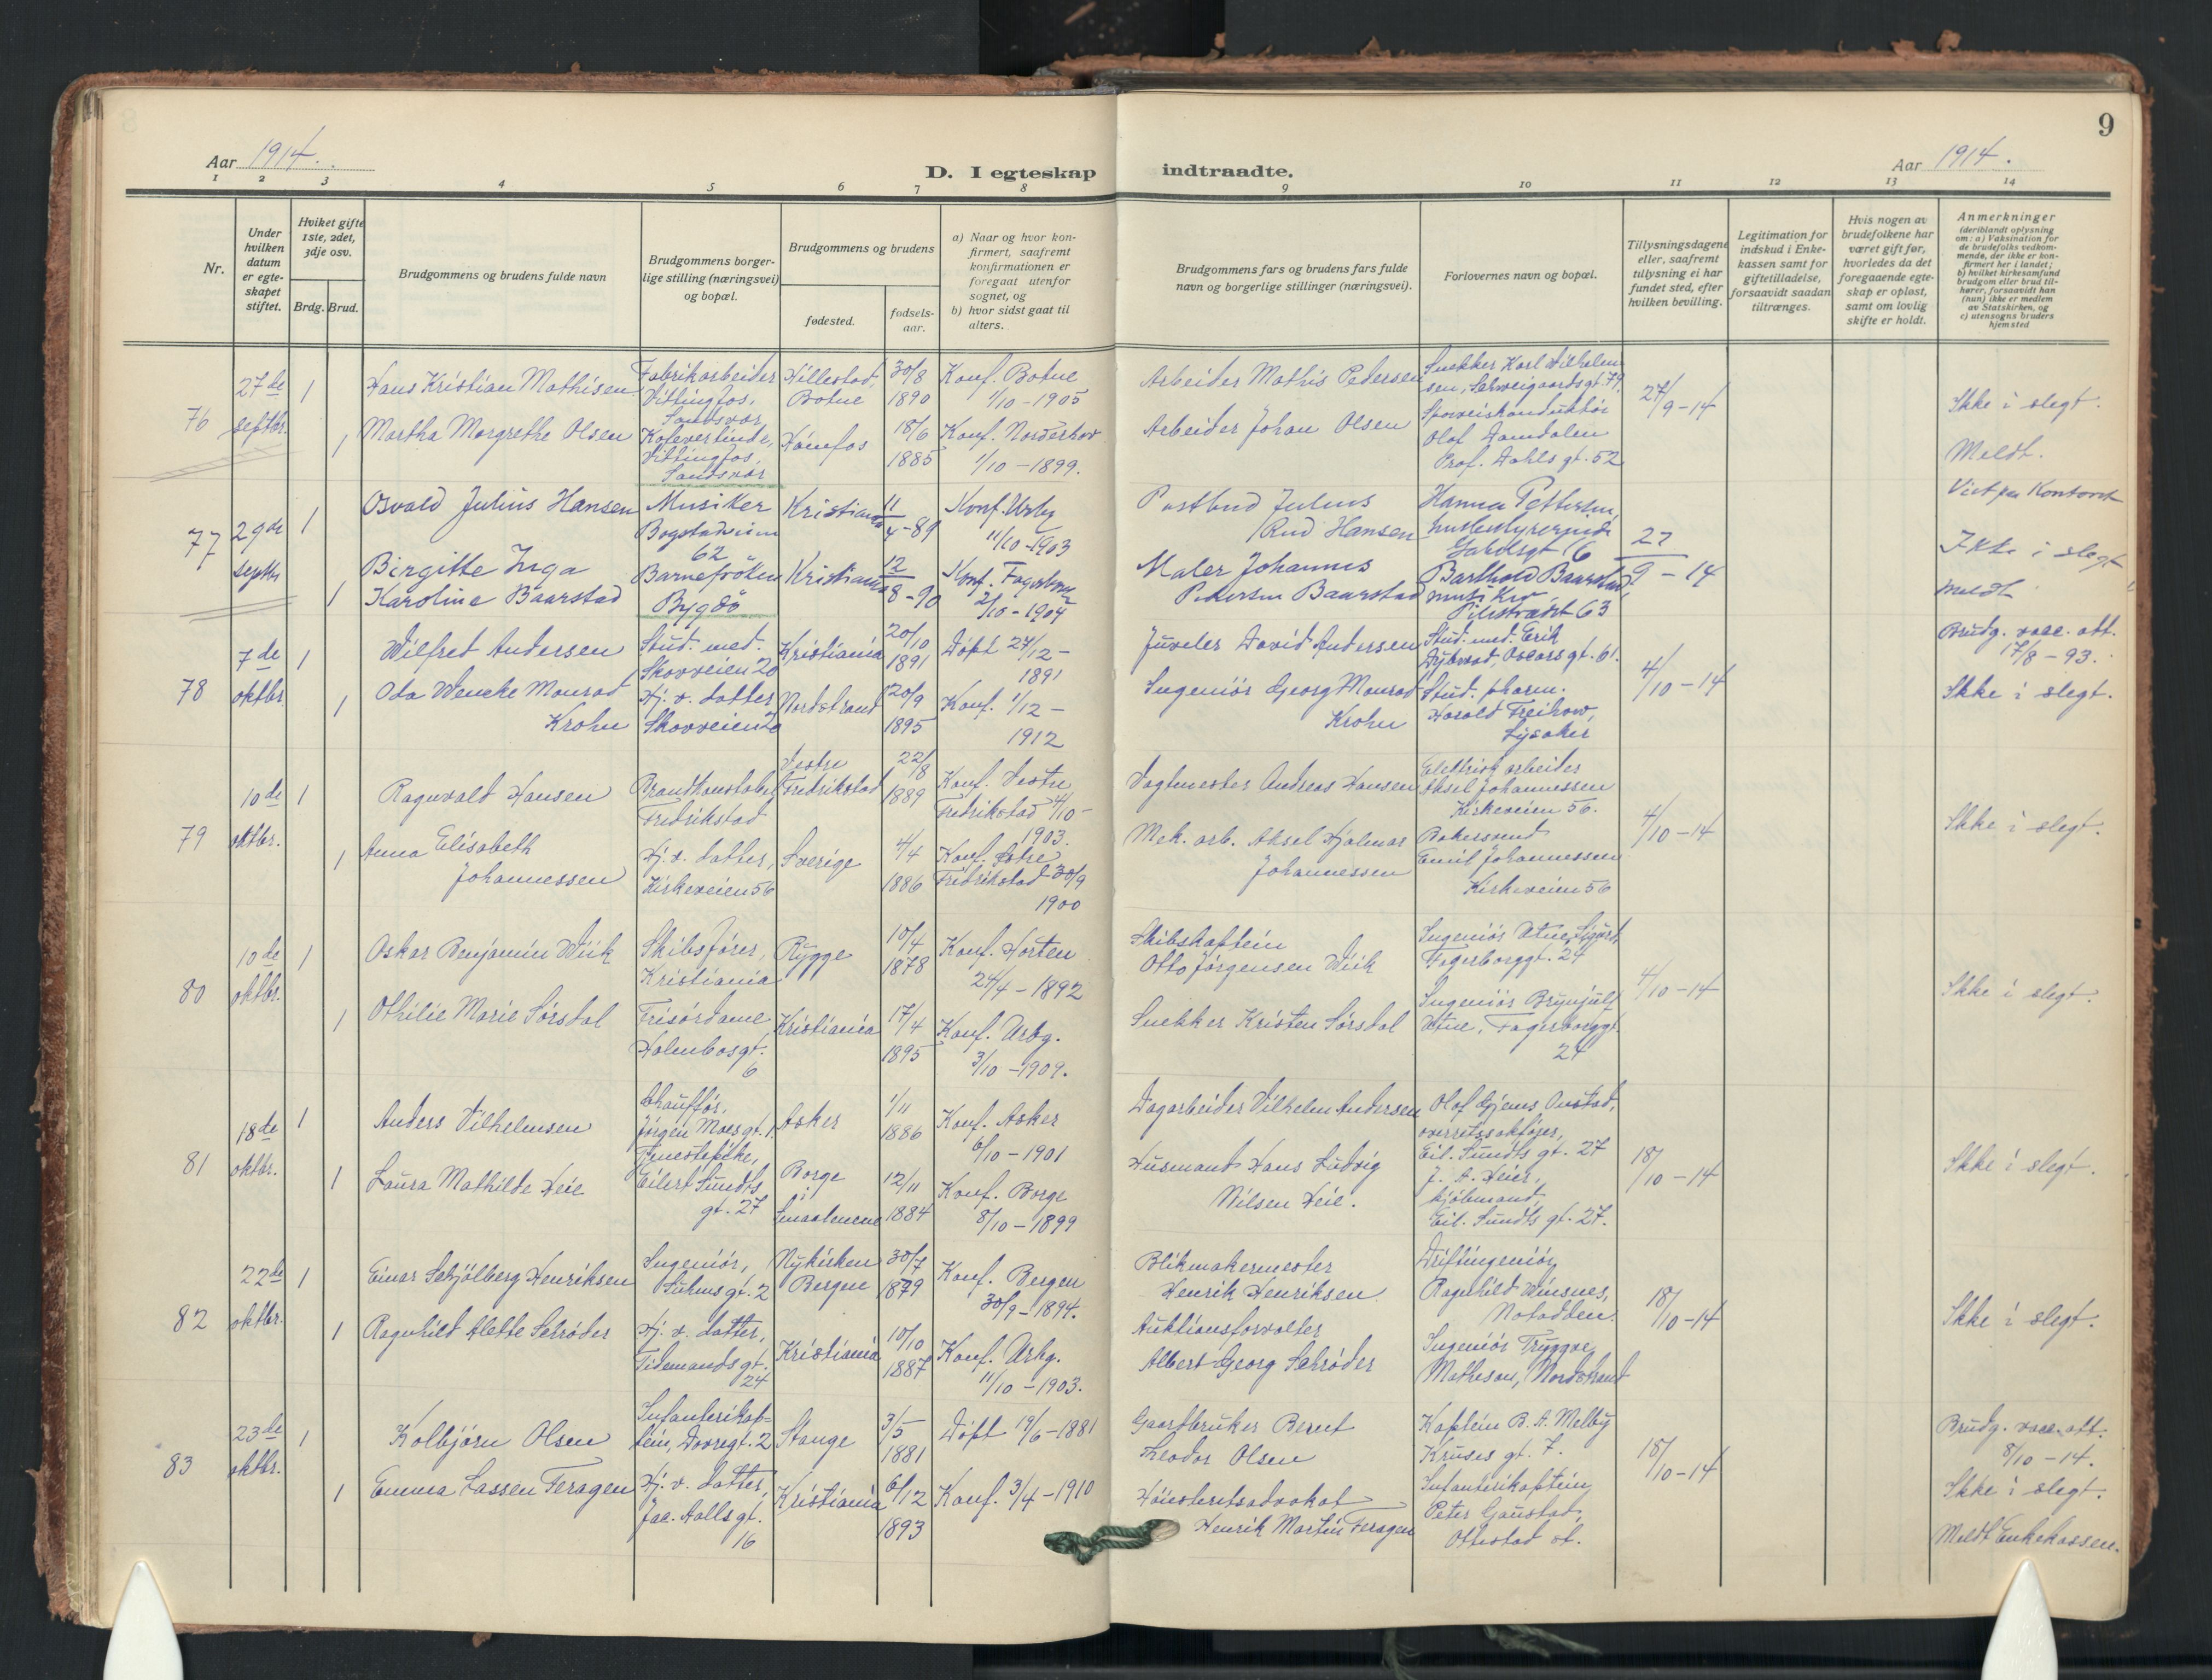 9
Aar 1914.
D. I egteskap indtraadte.
Aar 1914.
1 2 3 4 5 6 7 8 9 10 11 12 13 14
Nr.
Under hvilken datum er egteskapet stiftet.
Hviket gifte 1ste, 2det, 3dje osv.
Brdg. Brud.
Brudgommens og brudens fulde navn
Brudgommens borgerlige stilling (næringsvei) og bopæl.
Brudgommens og brudens
fødested.
fødselsaar.
a) Naar og hvor konfirmert, saafremt konfirmationen er foregaat utenfor sognet, og
b) hvor sidst gaat til alters.
Brudgommens fars og brudens fars fulde navn og borgerlige stillinger (næringsvei).
Forlovernes navn og bopæl.
Tillysningsdagene eller, saafremt tillysning ei har fundet sted, efter hvilken bevilling.
Legitimation for indskud i Enkekassen samt for giftetilladelse, forsaavidt saadan tiltrænges.
Hvis nogen av brudefolkene har været gift før, hvorledes da det foregaaende egteskap er opløst, samt om lovlig skifte er holdt.
Anmerkninger
(deriblandt oplysning om: a) Vaksination for de brudefolks vedkommende, der ikke er konfirmert her i landet;
b) hvilket kirkesamfund brudgom eller brud tilhører, forsaavidt han (hun) ikke er medlem av Statskirken, og
c) utensogns bruders hjemsted
76
27de septbr.
1 Hans Kristian Mathisen
Fabrikarbeider Vittingfos, Sandsvær
Hillestad, Botne
30/8 1890
Konf. Botne 1/10 - 1905
Arbeider Mathis Pedersen
Snekker Karl Wilhelmsen, Schweigaardsgt. 79
27/9 - 14
Ikke i slegt.
1 Martha Margrethe Olsen
Vittingfos, Sandsvær
Hønefos
18/6 1885
Konf. Norderhov 1/10 - 1899.
Arbeider Johan Olsen
Sporveiskonduktør Olaf Damdalen Prof. Dahls gt. 52
Meldt.
77
29de septbr
1 Osvald Julius Hansen
Musiker Bogstadveien 62
Kristiania
11/4 - 89
Konf. Urbg 11/10 - 1903
Postbud Julius Rud Hansen
Hanna Pettersen, husbestyrerinde Gabelsgt 16
27/9 - 14
Viet paa Kontoret
Ikke i slegt
Meldt
1 Birgitte Inga Karoline Baarstad
Barnefröken Bygdö
Kristiania
12/8 - 90
Konf. Fagerborg 2/10 - 1904
Maler Johannes Pedersen Baarstad
Barthold Baarstad, musiker Pilestrædet 63
78
7de oktbr
1 Wilfred Andersen
Stud. med. Skovveien 20
Kristiania
20/10 1891
Döpt 27/12 - 1891
Juveler David Andersen
Stud. med. Erik Dybwad, Oscars gt. 61.
4/10 - 14
Brudg. vacc. att. 17/8 - 93.
Ikke i slegt.
1 Oda Wencke Monrad Krohn
Hj. v. datter, Skovveien 20
Nordstrand
20/9 1895
Konf. 1/12 - 1912
Ingeniör Georg Monrad Krohn
Stud. pharm. Harald Freihow, Lysaker
79
10de oktbr.
1 Ragnvald Hansen
Brandkonstabel, Fredrikstad
Vestre Fredrikstad
22/8 1889
Konf. Vestre Fredrikstad 4/10 - 1903.
Vagtmester Andreas Hansen
Elektrisk arbeider Aksel Johannessen Kirkeveien 56.
4/10 - 14
Ikke i slegt.
1 Anna Elisabeth Johannessen
Hj. v. datter, Kirkeveien 56
Sverige
4/4 1886
Konf. Östre Fredrikstad 30/9 1900
Mek. arb. Aksel Hjalmar Johannessen
Bakersvend Emil Johannessen Kirkeveien 56
80
10de oktbr.
1 Oskar Benjamin Wiik
Skibsfører, Kristiania
Rygge
10/4 1878
Konf. Horten 24/4 - 1892
Skibskaptein Otto Jørgensen Wiik
Ingeniör Utne, Sigurd, Fagerborggt. 24
4/10 - 14
Ikke i slegt.
1 Othilie Marie Sørsdal
Frisørdame Holmbosgt. 6
Kristiania
17/4 1895
Konf. Urbg. 3/10 - 1909.
Snekker Kristen Sørsdal
Ingeniör Brynjulf Utne, Fagerborggt 24
81
18de oktbr.
1 Anders Vilhelmsen
Chauffør, Jörgen Moes gt. 1.
Asker
1/11 1886
Konf. Asker 6/10 - 1901
Dagarbeider Vilhelm Andersen
Olaf Gjems Onstad, overretssakfører, Eil. Sundts gt. 27
18/10 - 14
Ikke i slegt.
1 Laura Mathilde Heie
Tjenestepike, Eilert Sundts gt. 27
Borge i Smaalenene
12/11 1884
Konf. Borge 8/10 - 1899
Husmand Hans Ludvig Nilsen Heie.
J. A. Heier, kjöbmand, Eil. Sundts gt. 27.
82
22de oktbr.
1 Einar Schjölberg Henriksen
Ingeniör, Suhms gt. 2
Nykirken Bergen
30/7 1879
Konf. Bergen 30/9 - 1894.
Blikmakermester Henrik Henriksen
Driftingeniör, Ragnhild Winsnes, Notodden.
18/10 - 14
Ikke i slegt.
1 Ragnhild Alette Schrøder
Hj. v. datter, Tidemands gt. 24
Kristiania
10/10 1887
Konf. Urbg. 11/10 - 1903.
Auktionsforvalter Albert Georg Schrøder
Ingeniör Tryggve Mathesen, Nordstrand
83
23de oktbr.
1 Kolbjörn Olsen
Infanterikaptein, Dovregt. 2
Stange
3/5 1881
Döpt 19/6 - 1881
Gaardbruker Bernt Theodor Olsen
Kaptein B. A. Melby Kruses gt. 7.
18/10 - 14
Brudg. vacc. att. 8/10 - 14.
Ikke i slegt.
Meldt Enkekassen.
1 Emma Lassen Feragen
Hj. v. datter, Jac. Aalls gt. 16
Kristiania
6/12 1893
Konf. 3/4 - 1910
Höiesteretsadvokat Henrik Martin Feragen
Infanterikaptein Peter Gaustad, Ottestad st.